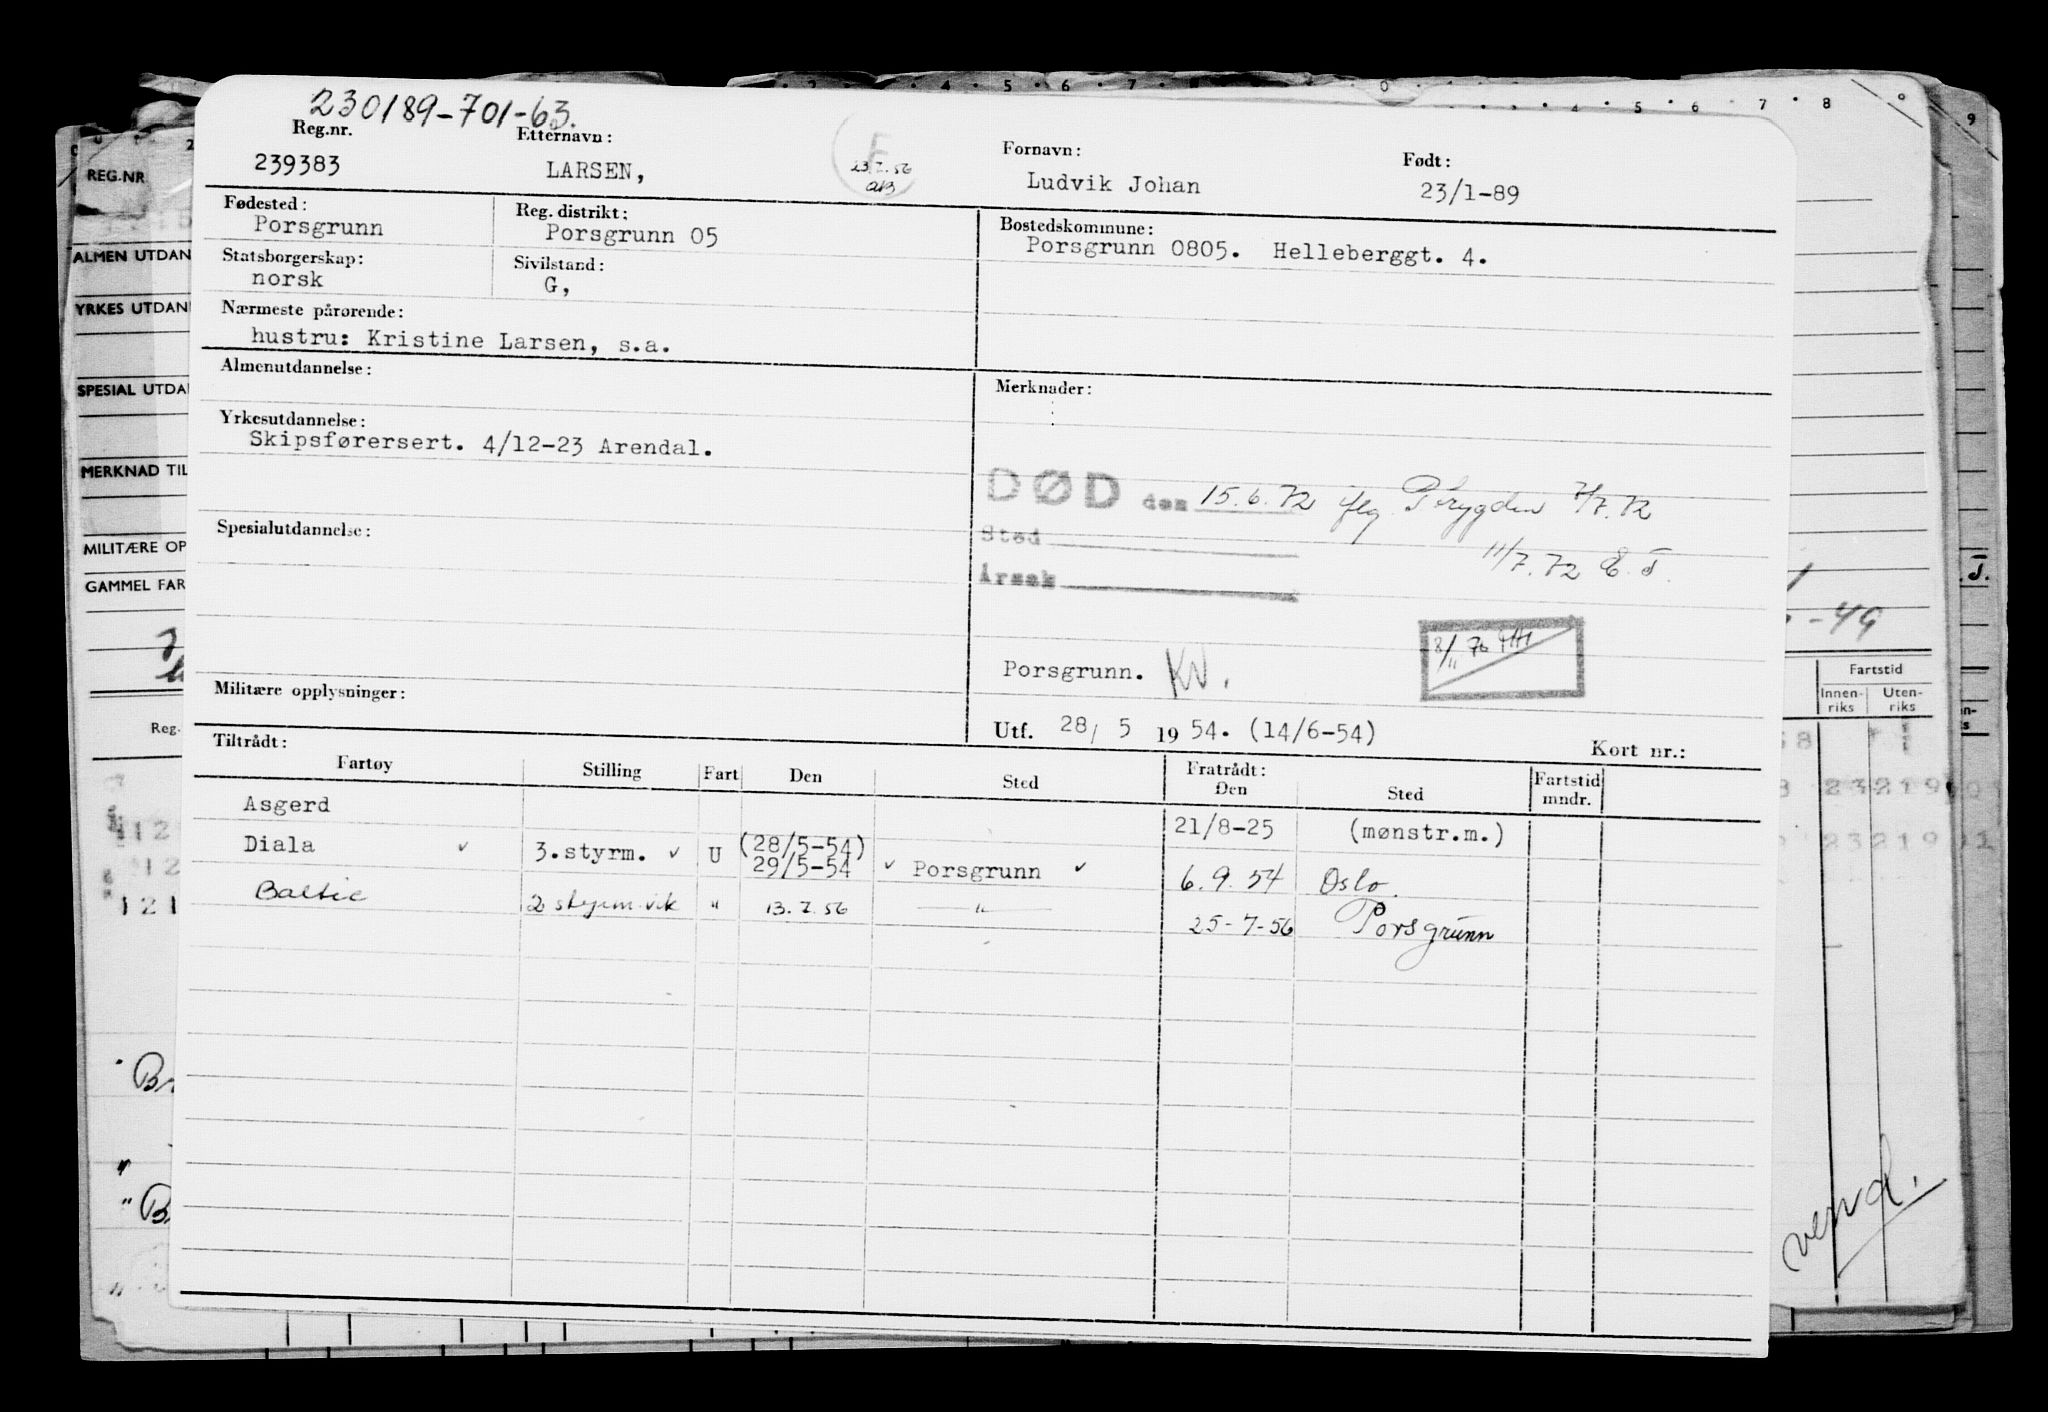 230189-701-63.
Reg.nr. Etternavn: Fornavn: Født:
239383 LARSEN, 23.7.56 Ludvik Johan 23/1-89
Fødested: Reg. distrikt: Bostedskommune:
Porsgrunn Porsgrunn 05 Porsgrunn 0805. Helleberggt. 4.
Statsborgerskap: Sivilstand:
norsk G,
Nærmeste pårørende:
hustru: Kristine Larsen, s.a.
Almenutdannelse: Merknader:
Yrkesutdannelse:
Skipsførersert. 4/12-23 Arendal.
DØD den 15.6.72 flg. P.trygden 7/7.72
Spesialutdannelse: Sted
11/7.72 E.T.
Årsak
8/11 70
Porsgrunn. KW.
Militære opplysninger:
Utf. 28/ 5 19 54. (14/6-54)
Kort nr.:
Tiltrådt: Fratrådt:
Fartøy Stilling Fart Den Sted Den Sted Fartstid mndr.
Asgerd 21/8-25 (mønstr.m.)
Diala ✓ 3.styrm. ✓ U (28/5-54) 29/5-54 ✓ Porsgrunn ✓ 6.9.54 Oslo.
Baltic 2 styrm. vik " 13.7.56 — " — 25-7-56 Porsgrunn
REG.NR
ALMEN UTDAN
YRKES UTDAN
SPESIAL UTDA
MERKNAD TIL
MILITÆRE OP
GAMMEL FAR
Reg.
-49
Fartstid
Innen-riks Uten-riks
vend.